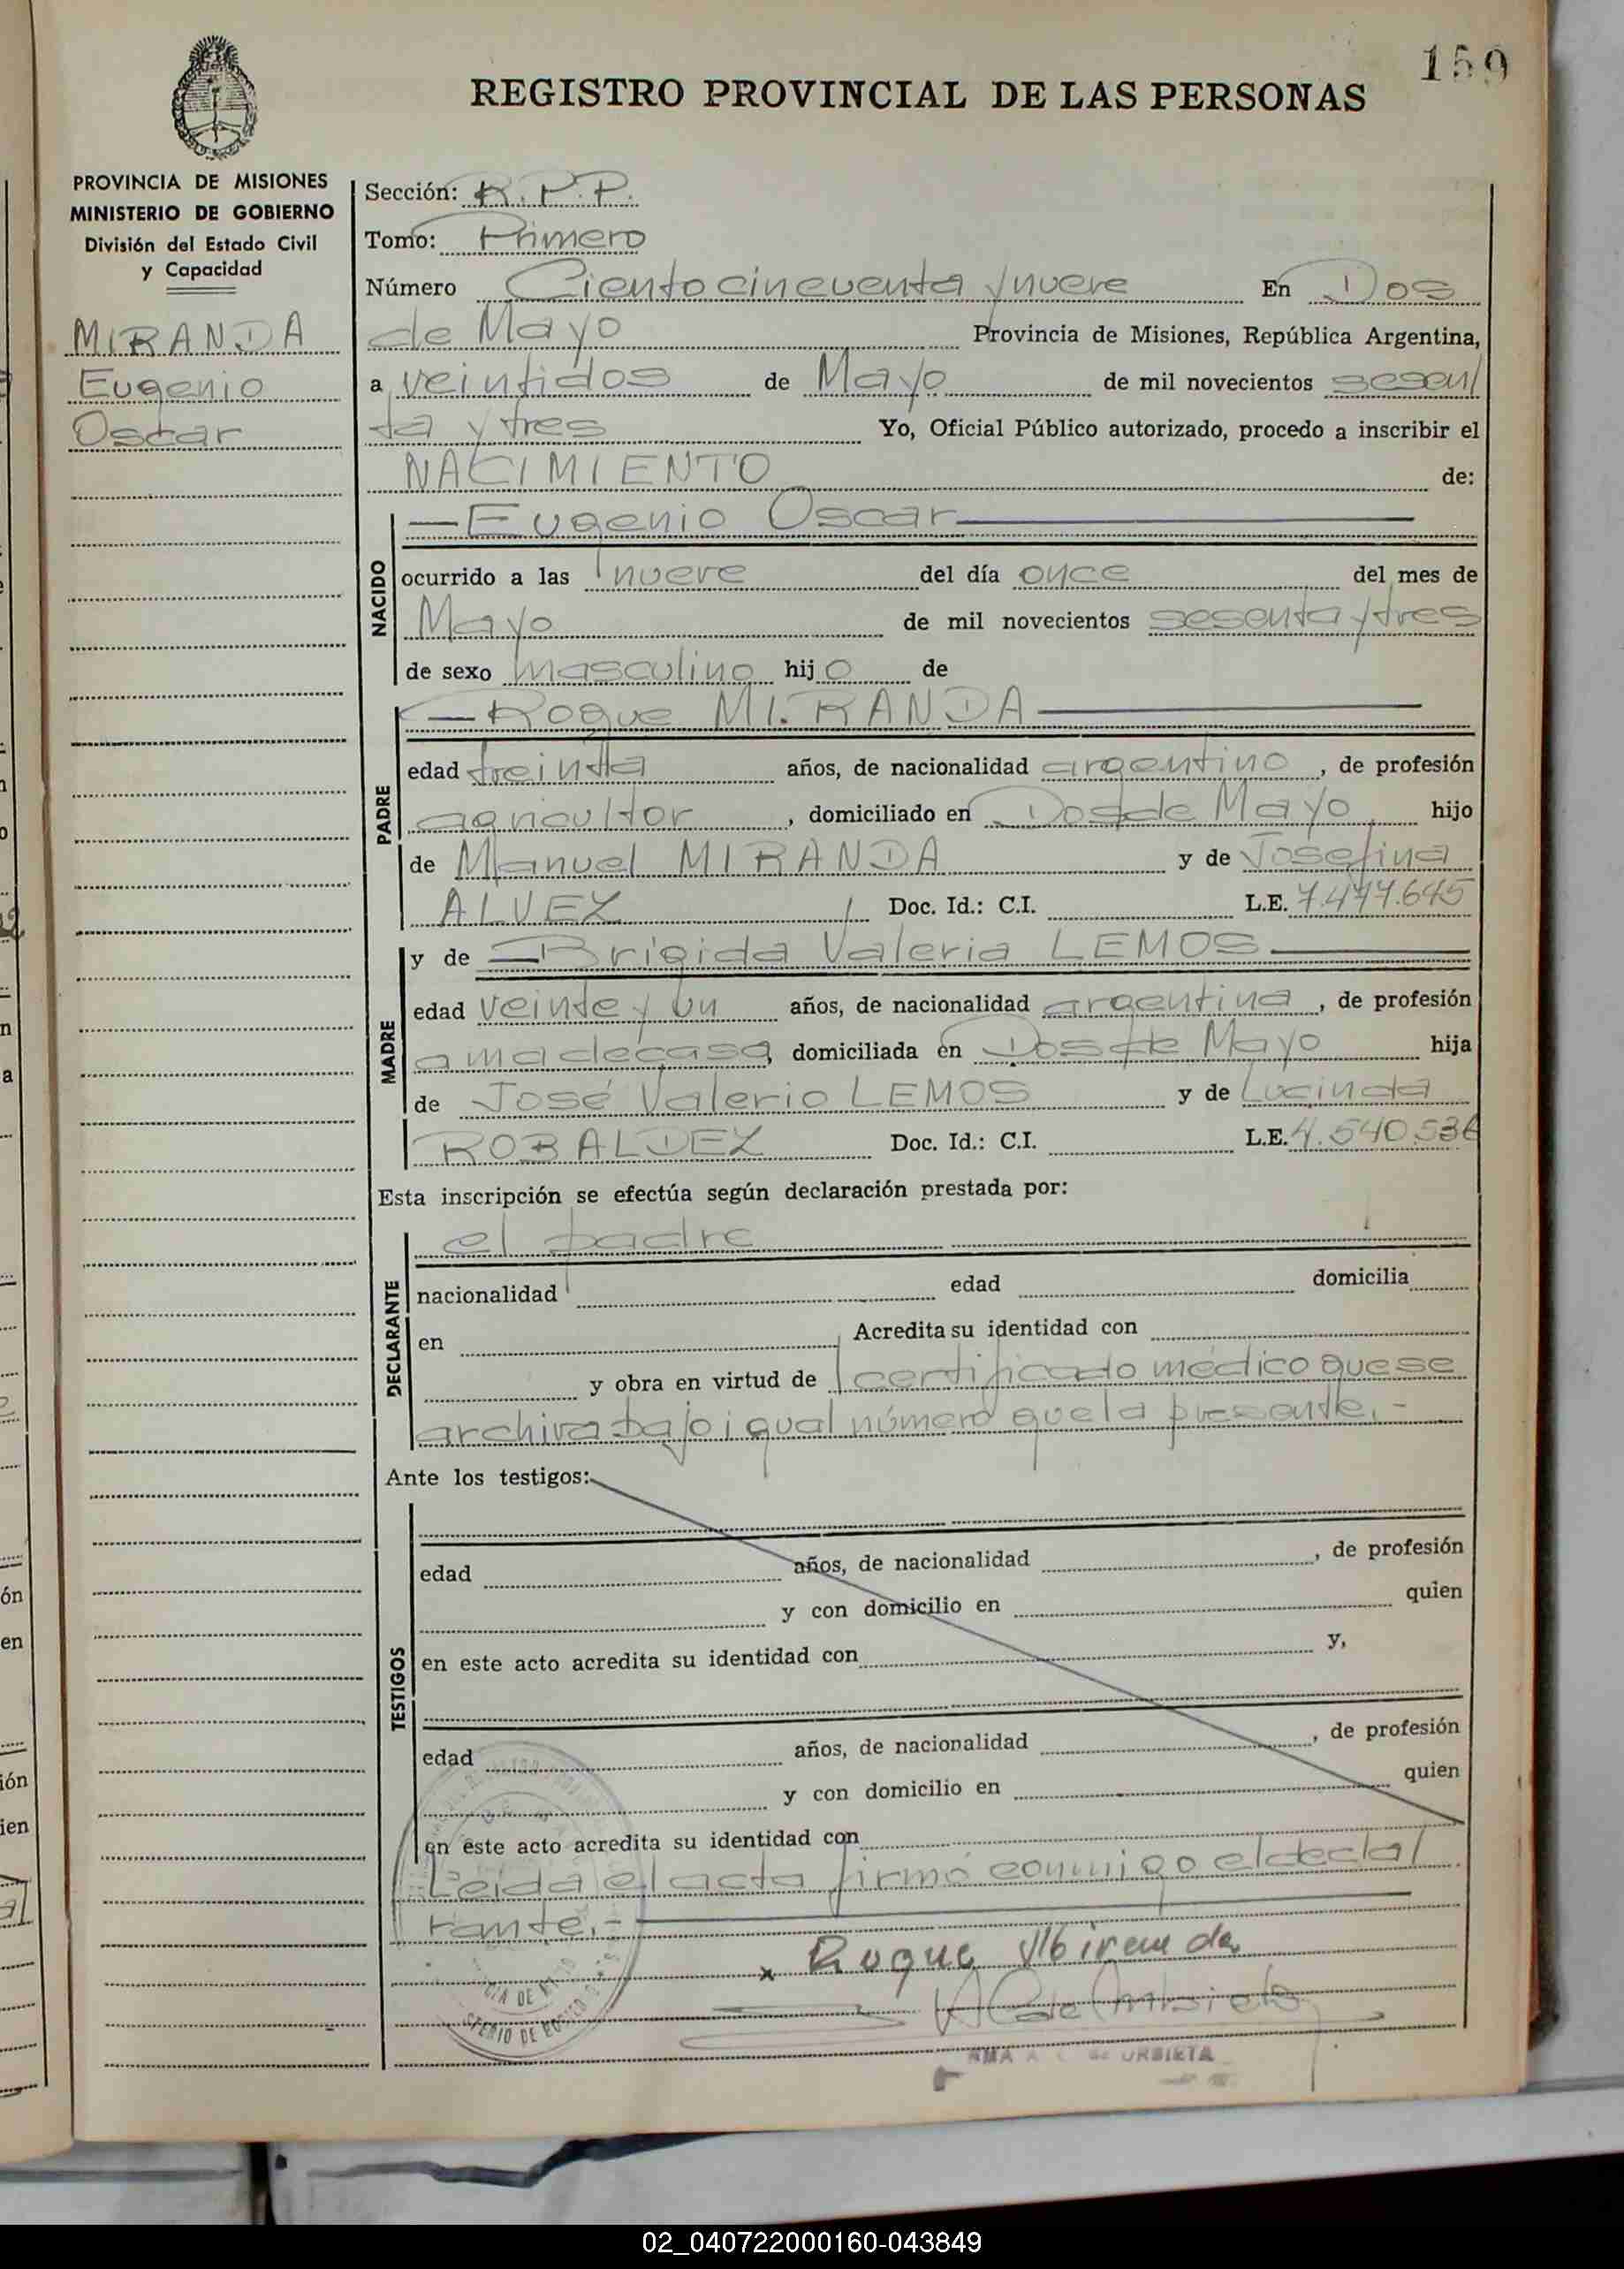 159
REGISTRO PROVINCIAL DE LAS PERSONAS
PROVINCIA DE MISIONES
MINISTERIO DE GOBIERNO
División del Estado Civil
y Capacidad
MIRANDA
Eugenio
Oscar
Sección: R.P.P.
Tomo: Primero
Número Ciento cincuenta y nueve En Dos
de Mayo Provincia de Misiones, República Argentina,
a veintidos de Mayo de mil novecientos sesen/
ta y tres Yo, Oficial Público autorizado, procedo a inscribir el
NACIMIENTO de:
NACIDO
— Eugenio Oscar —
ocurrido a las nueve del día once del mes de
Mayo de mil novecientos sesenta y tres
de sexo masculino hijo de
PADRE
— Roque MIRANDA —
edad treinta años, de nacionalidad argentino, de profesión
agricultor, domiciliado en Dos de Mayo hijo
de Manuel MIRANDA y de Josefina
ALVEZ Doc. Id.: C.I. L.E. 7.477.645
MADRE
y de — Brígida Valeria LEMOS —
edad veinte y un años, de nacionalidad argentina, de profesión
ama de casa, domiciliada en Dos de Mayo hija
de José Valerio LEMOS y de Lucinda
ROBALDEZ Doc. Id.: C.I. L.E. 4.540.536
Esta inscripción se efectúa según declaración prestada por:
DECLARANTE
el padre
nacionalidad edad domicilia
en Acredita su identidad con
y obra en virtud de certificado médico que se
archiva bajo igual número que la presente.-
Ante los testigos:
TESTIGOS
edad años, de nacionalidad , de profesión
y con domicilio en quien
en este acto acredita su identidad con y,
edad años, de nacionalidad , de profesión
y con domicilio en quien
en este acto acredita su identidad con
Leida el acta firmó conmigo el decla/
rante.-
x Roque Miranda
DE URBIETA
02_040722000160-043849